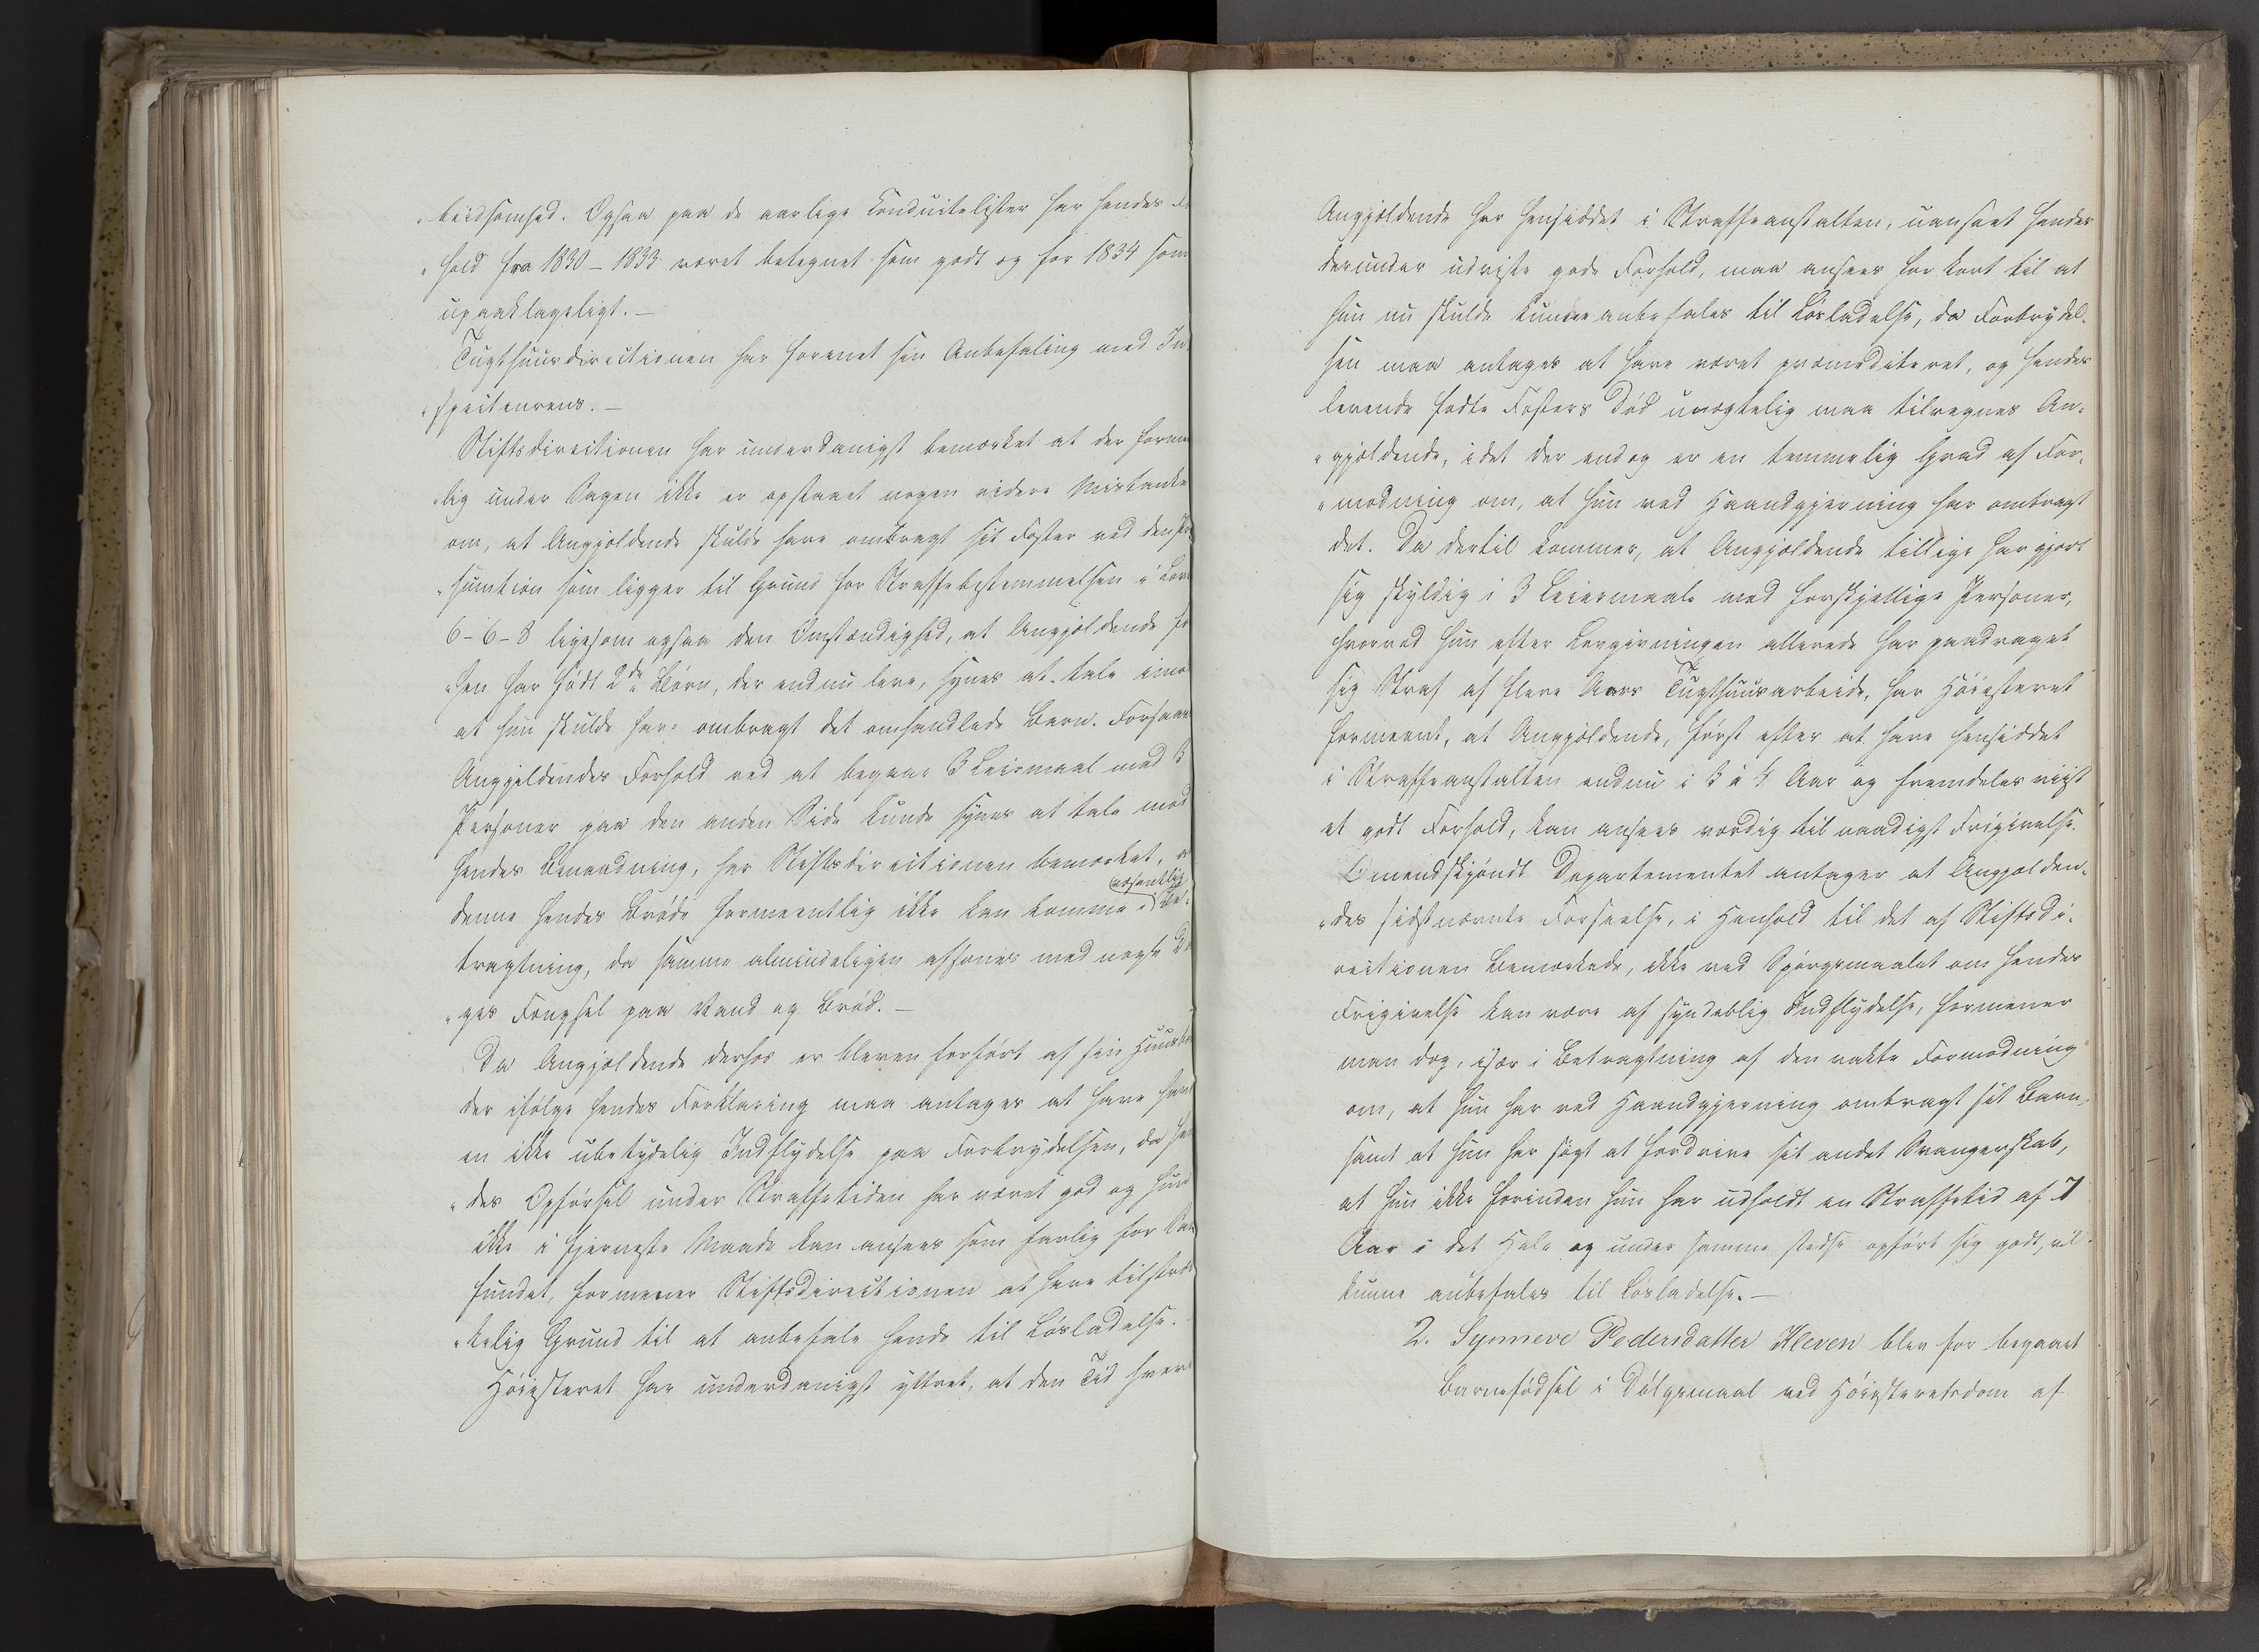 „beidsomhed. Ogsaa paa de aarlige Conduitelister har hendes
„hold fra 1830-1833 været betegnet som godt og for 1834 som
upaaklageligt.-
Tugthuusdirectionen har forenet sin Anbefaling med In
„specteurens.-
Stiftsdirectionen har underdanigst bemærket at der
„lig under Sagen ikke er opstaaet nogen videre Mistanke
om, at Angjældende skulde have ombragt sit Foster ved den
„sumtion som ligger til Grund for Straffebestemmelsen i
6-6-8 ligesom ogsaa den Omstændighed, at Angjældende
„hen har født 2de Børn, der endnu leve, synes at tale imo
at hun skulde have ombragt det omhandlede Barn. Forsaa
Angjeldendes Forhold ved at begaae 3 Leiermaal med 3
Personer paa den anden Side kunde synes at tale mod
hendes Benaadning, har Stiftsdirectionen bemærket,
denne hendes Brøde formeentlig ikke kan komme i væsentlig Be-
tragtning, da samme almindeligen afsones med nogle
„ges Fængsel paa Vand og Brød.-
Da Angjældende derhos er bleven forført af sin
der ifølge hendes Forklaring maa antages at have havt
en ikke ubetydelig Indflydelse paa Forbrydelsen, da hen
„des Opførsel under Straffetiden har været god og hun
ikke i fjerneste Maade kan ansees som farlig for Sam
fundet, formener Stiftsdirectionen at have tilstræk
„kelig Grund til at anbefale hende til Løsladelse.-
Høiesteret har underdanigst yttret, at den Tid hvor
Angjældende har hensiddet i Straffeanstalten, uanseet hendes
derunder udviste gode Forhold, maa ansees for kort til at
hun nu skulde kunne anbefales til Løsladelse, da Forbrydel-
sen maa antages at have været præmediteret, og hendes
levende fødte Fosters Død unægtelig maa tilregnes An-
„gjældende, idet der endog er en temmelig Grad af For-
„modning om, at hun ved Haandgjerning har ombragt
det. Da dertil kommer, at Angjældende tillige har gjort
sig skyldig i 3 Leiermaale med forskjellige Personer,
hvorved hun efter Lovgivningen allerede har paadraget
sig Straf af flere Aars Tugthuusarbeide, har Høiesteret
formeent, at Angjældende, først efter at have hensiddet
i Straffeanstalten endnu i 3 à 4 Aar og fremdeles viist
et godt Forhold, kan ansees værdig til naadigst Frigivelse.
Omendskjøndt Departementet antager at Angjælden-
„des sidstnævnte Forseelse, i Henhold til det af Stiftsdi-
rectionen Bemærkede, ikke ved Spørgsmaalet om hendes
Frigivelse kan være af synderlig Indflydelse, formener
man dog, især i Betragtning af den vakte Formodning
om, at hun har ved Haandgjerning ombragt sit Barn,
samt at hun har søgt at fordrive sit andet Svangerskab,
at hun ikke forinden hun har udholdt en Straffetid af 7
Aar i det Hele og under samme stedse opført sig godt, vil
kunne anbefales til Løsladelse.-
2. Synneve Pedersdatter Kleven blev for begaaet
Barnefødsel i Dølgsmaal ved Høiesteretsdom af